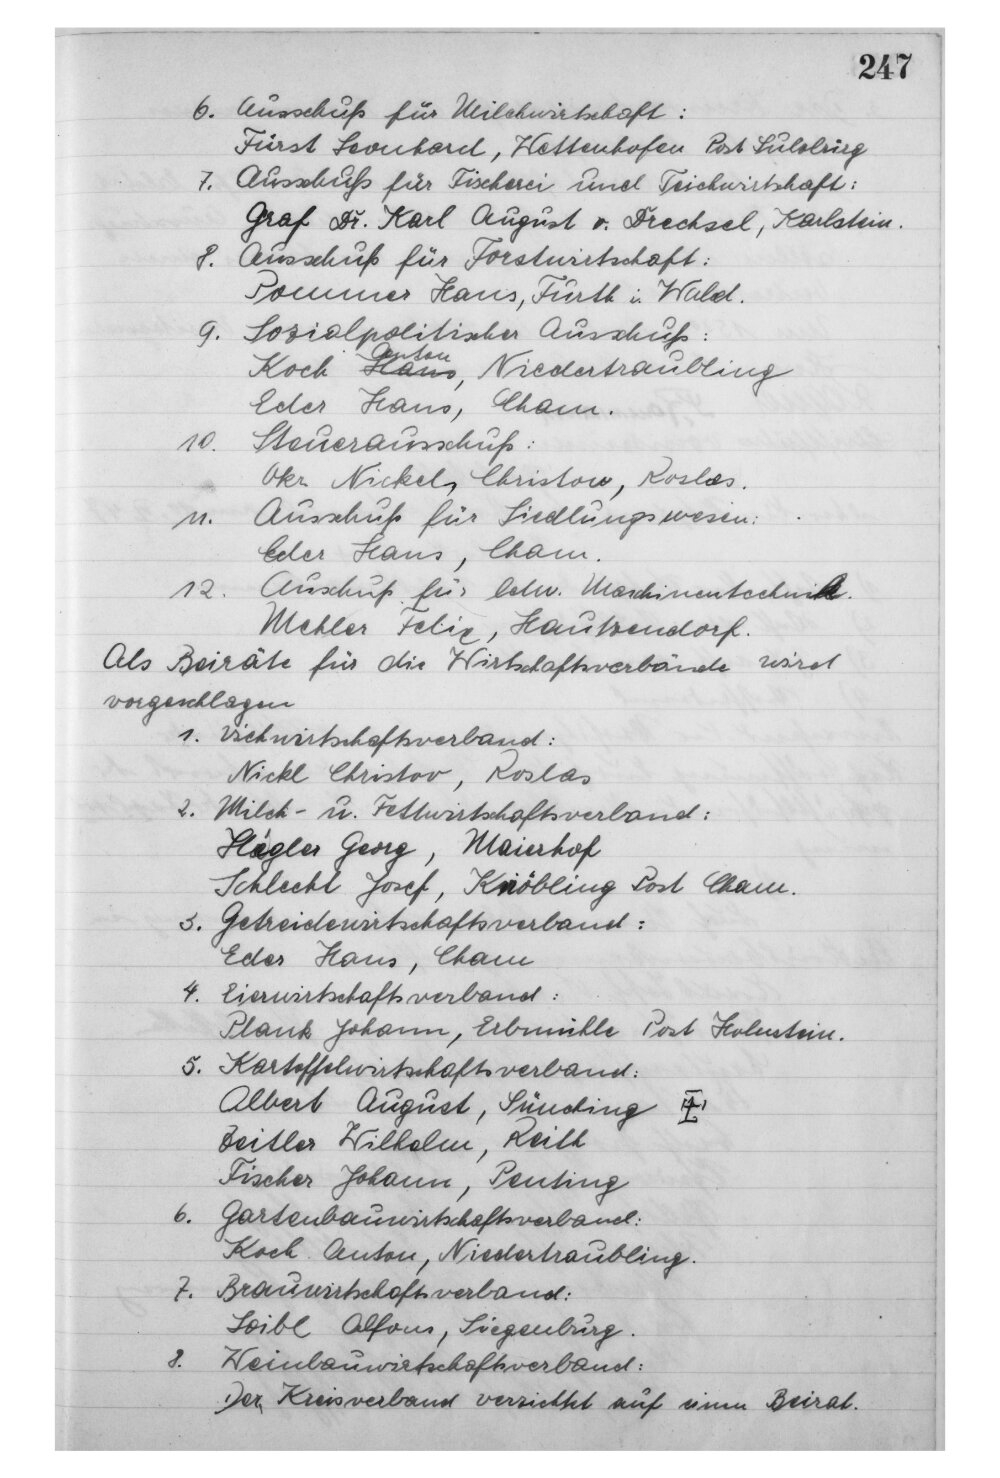 247
6. Ausschuß für Milchwirtschaft:
Fürst Leonhard, Wettenhofen Post Sulzbürg
7. Ausschuß für Fischerei und Teichwirtschaft:
Graf Dr. Karl August v. Drechsel, Karlstein.
8. Ausschuß für Forstwirtschaft:
Pommer Hans, Fürth i. Wald.
9. Sozialpolitischer Ausschuß:
Anton
Koch Hans, Niedertraubling
Eder Hans, Cham.
10. Steuerausschuß:
Ökr. Nickel, Christow, Roslas.
11. Ausschuß für Siedlungswesen:
Eder Hans, Cham.
12. Ausschuß für ldw. Maschinentechnik.
Mehler Felix, Hautzendorf.
Als Beiräte für die Wirtschaftsverbände wird
vorgeschlagen
1. Viehwirtschaftsverband:
Nickl Christov, Roslas
2. Milch- u. Fettwirtschaftsverband:
Högler Georg, Maierhof
Schlecht Josef, Knöbling Post Cham.
3. Getreidewirtschaftsverband:
Eder Hans, Cham
4. Eierwirtschaftsverband:
Plank Johann, Erbmühle Post Holnstein.
5. Kartoffelwirtschaftsverband:
Albert August, Sünching
Beitler Wilhelm, Reith
Fischer Johann, Penting
6. Gartenbauwirtschaftsverband:
Koch Anton, Niedertraubling.
7. Brauwirtschaftsverband:
Loibl Alfons, Siegenburg.
8. Weinbauwirtschaftsverband:
Der Kreisverband verzichtet auf einen Beirat.